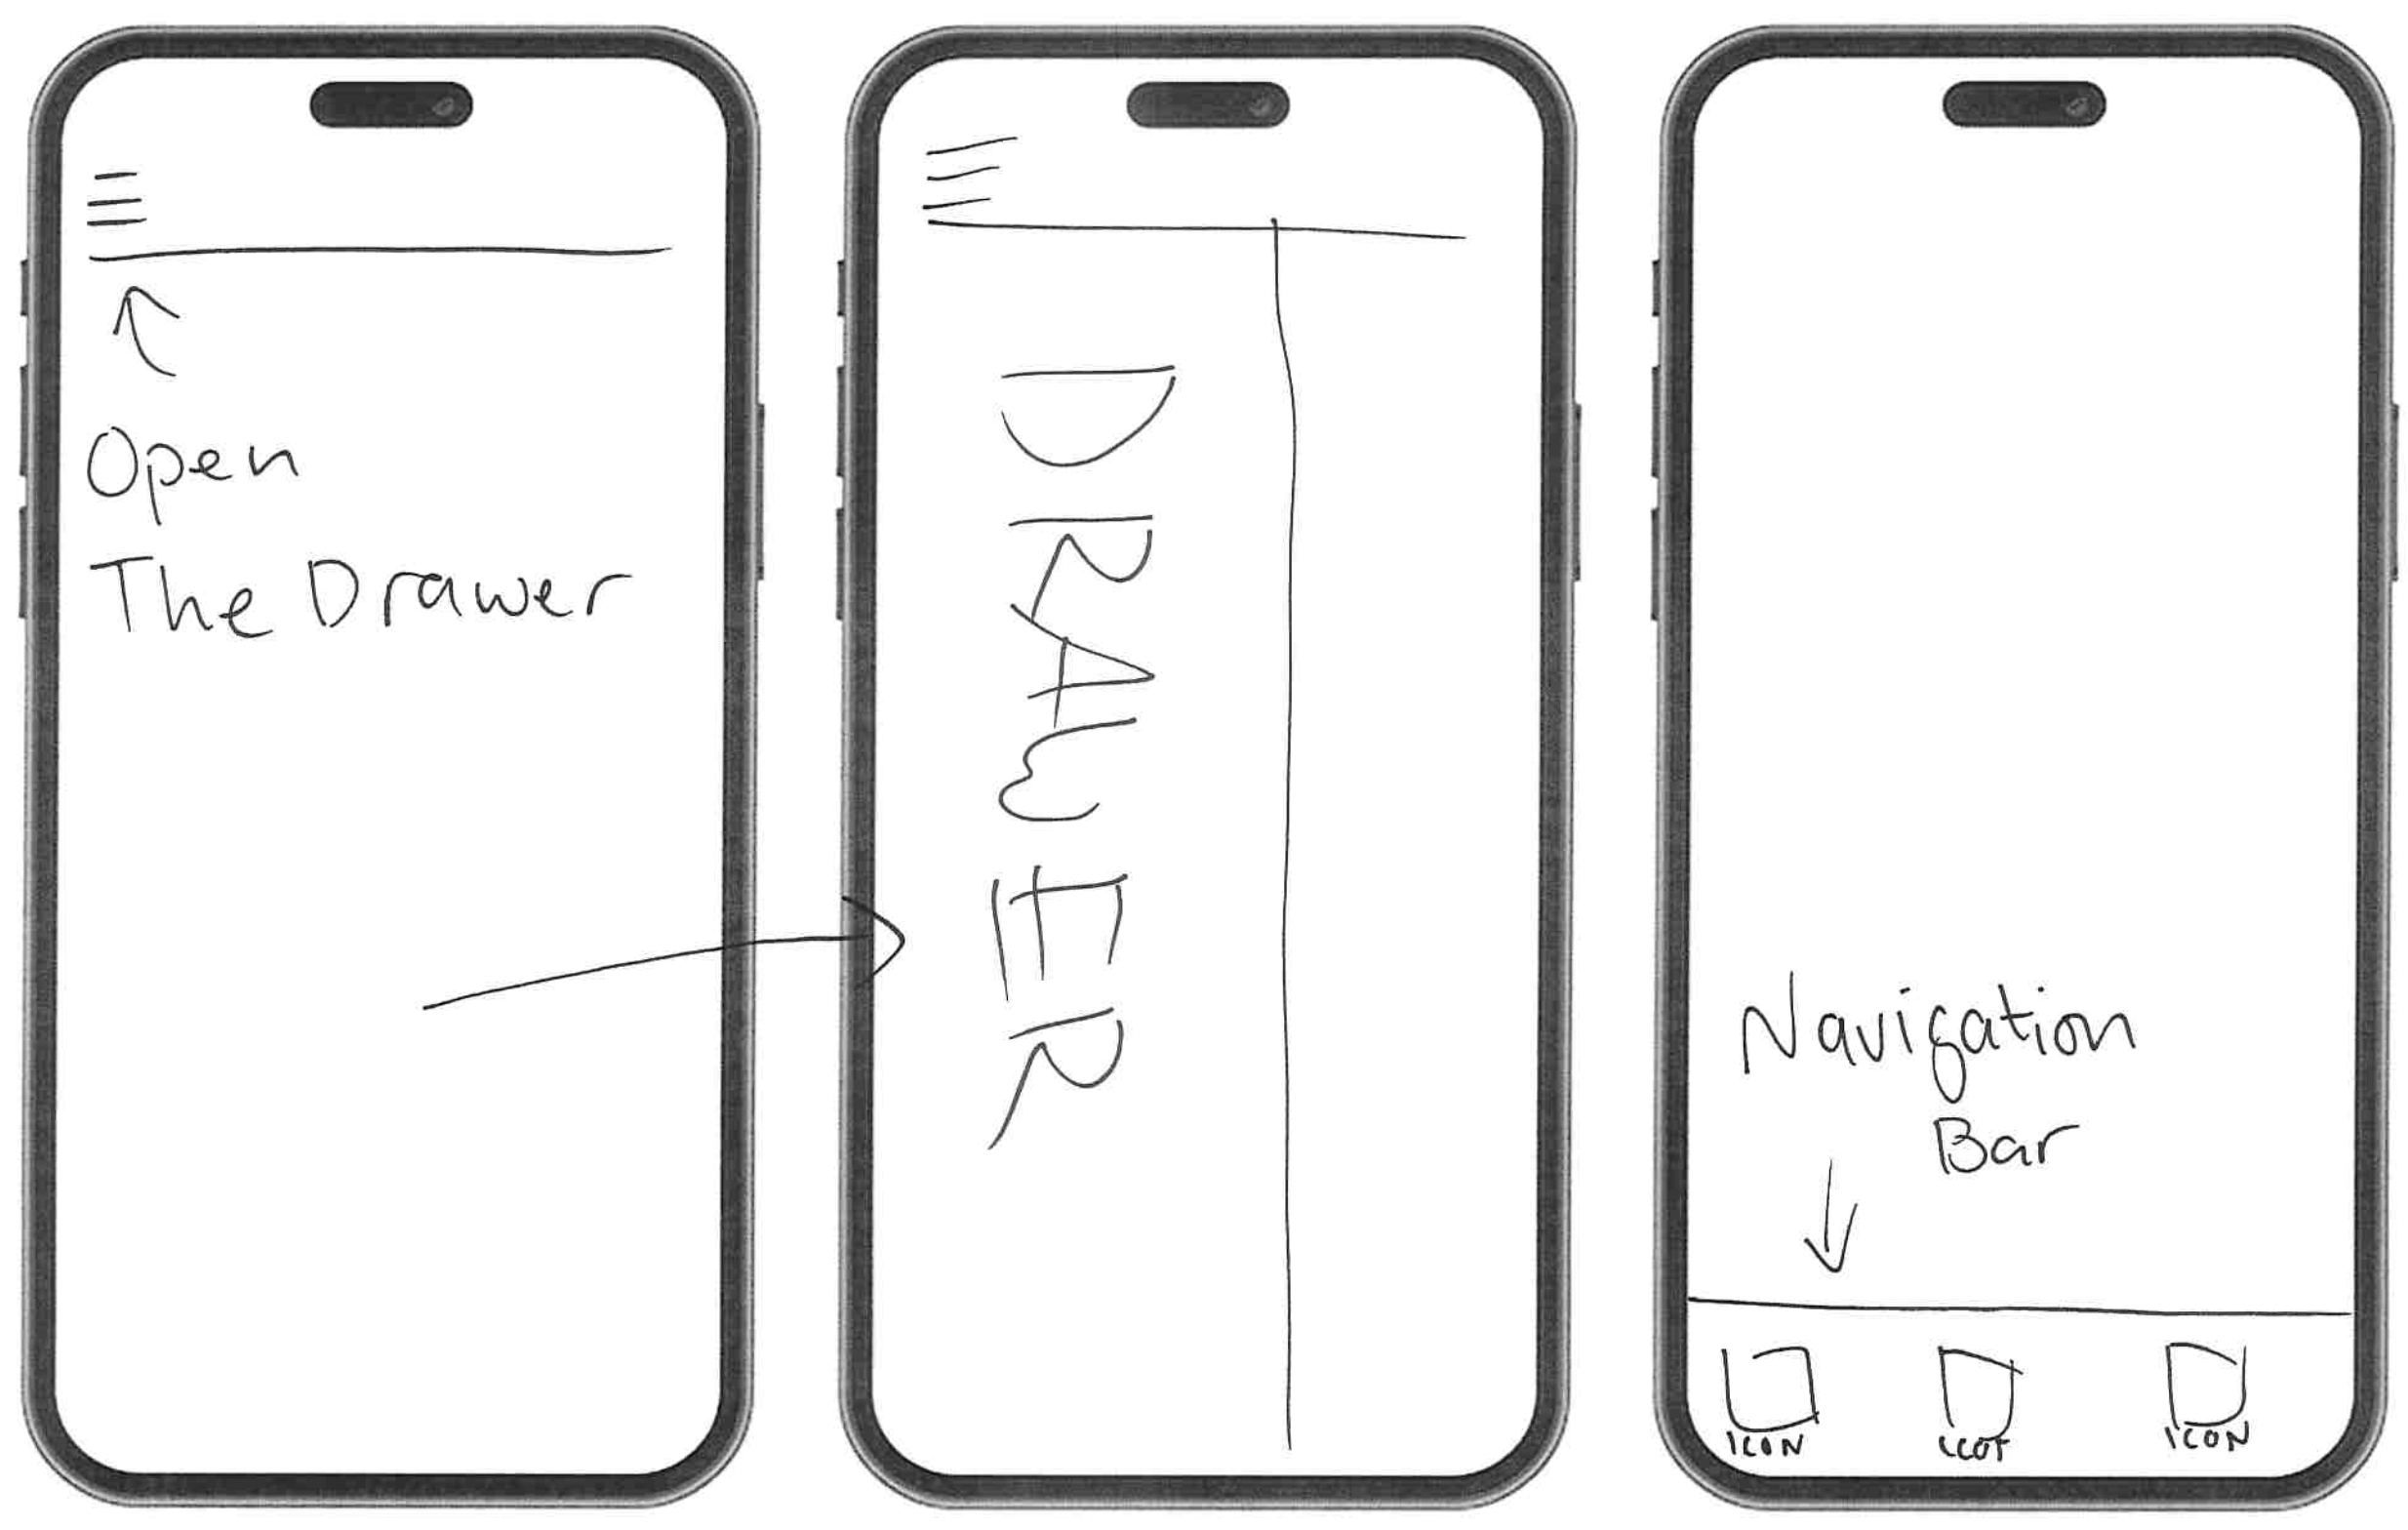 Open
The Drawer
DRAWER
Navigation
Bar
ICON
ICON